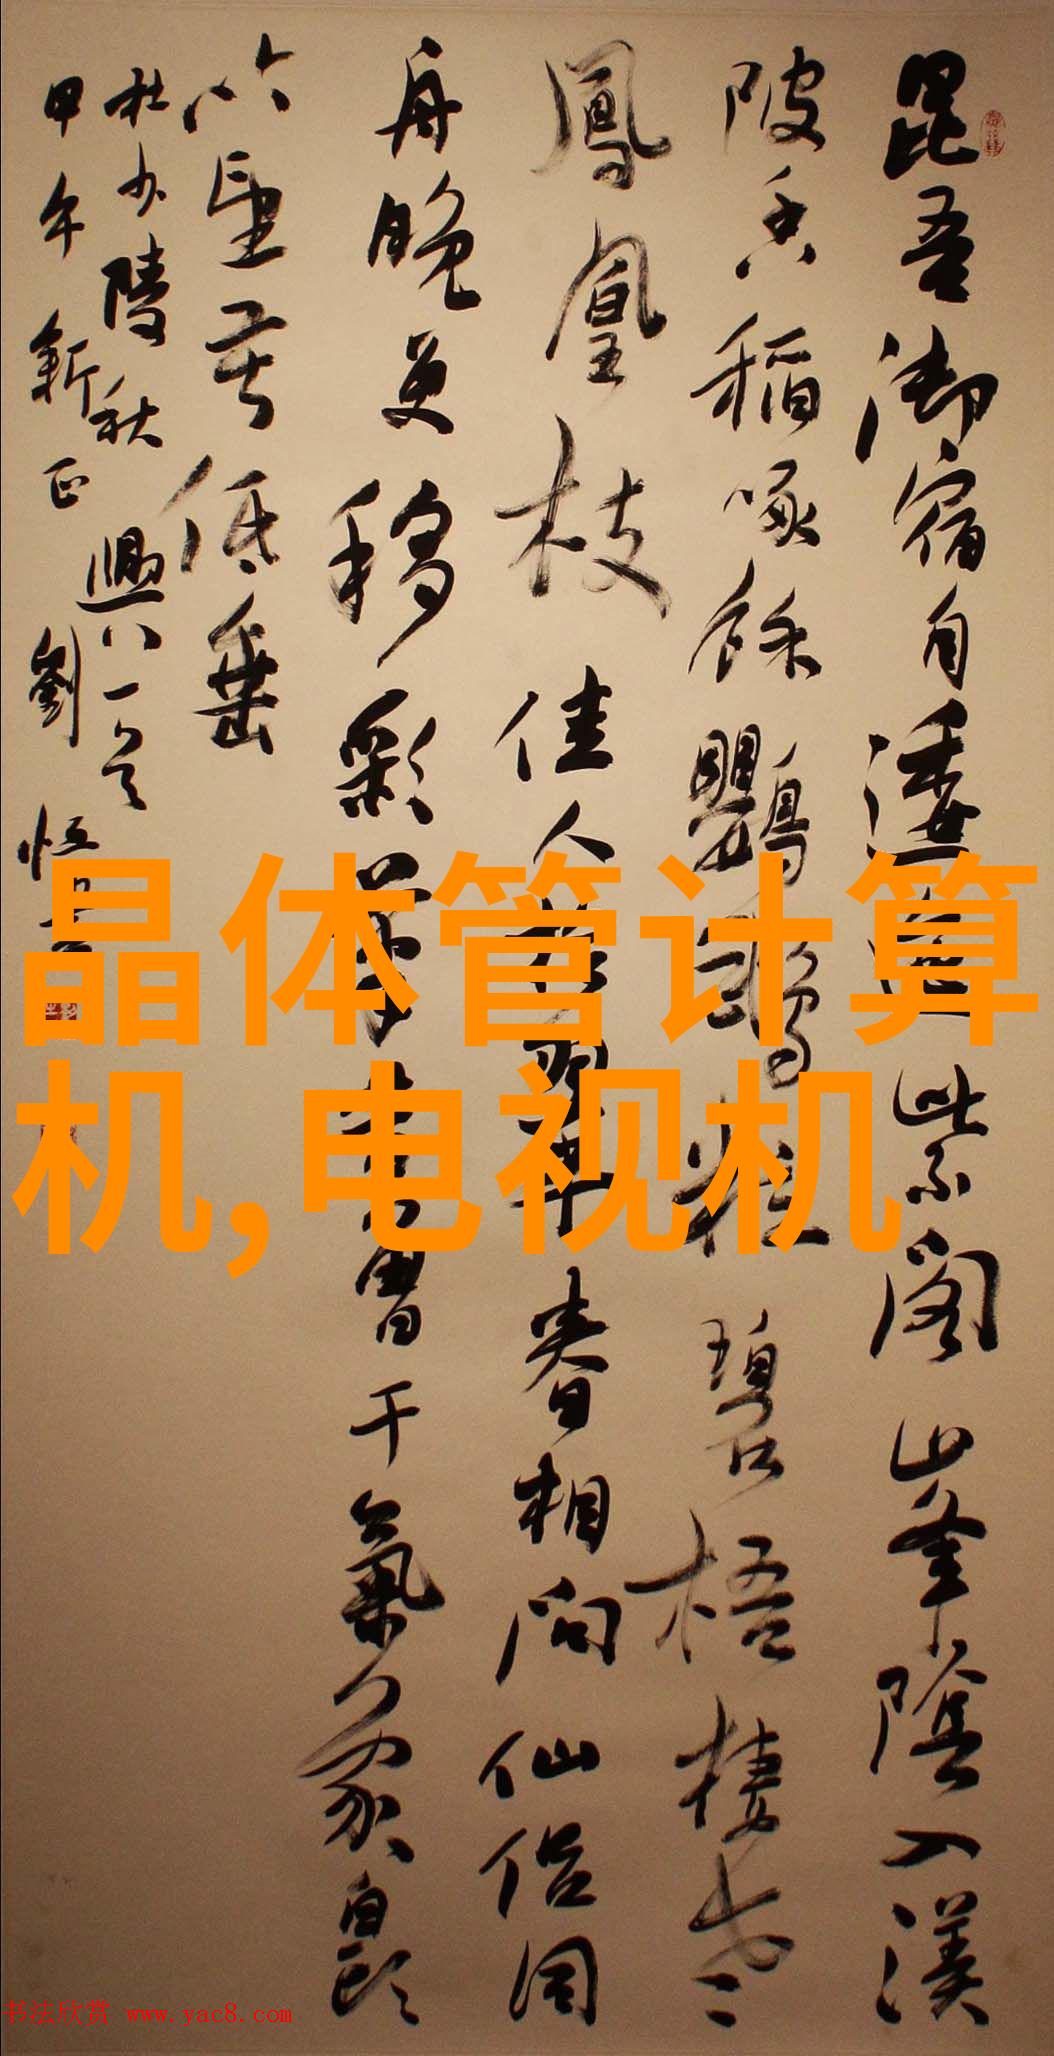 昆吾御宿自逶迤紫閣峯陰入渼
陂香稻啄餘鸚鵡粒碧梧棲老
鳳凰枝佳人拾翠春相問仙侣同
舟晚更移彩筆昔曾干氣象白頭
吟望苦低垂
杜少陵秋興八一首
甲午新正劉恒
晶体管计算
机,电视机
书法欣赏 www.yac8.com